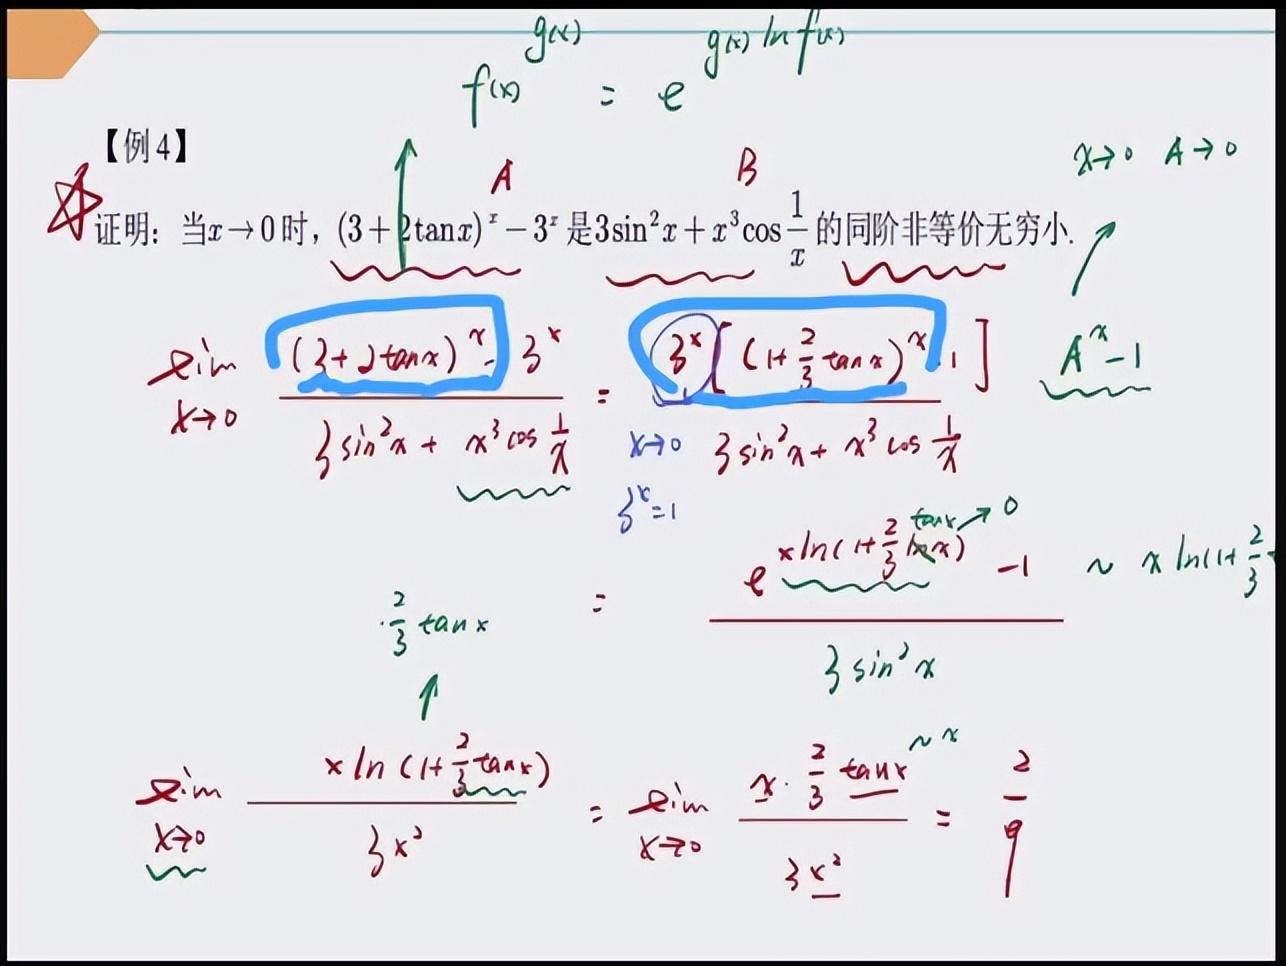 f(x)^g(x) = e^g(x) ln f(x)
【例4】
x→0 A→0
A B
证明：当x→0时，(3+2tanx)^x－3^x是3sin²x+x³cos1/x的同阶非等价无穷小.
lim x→0 (3+2tanx)^x - 3^x / 3sin²x + x³cos 1/x = 3^x[(1+2/3 tanx)^x - 1] / 3sin²x + x³cos 1/x
A^x-1
x→0
3^x=1
= e^xln(1+2/3 tanx) -1 / 3sin²x ~ x ln(1+2/3
tanx → 0
2/3 tanx
lim x→0 x ln(1+2/3 tanx) / 3x² = lim x→0 x·2/3 tanx / 3x² = 2/9
~x